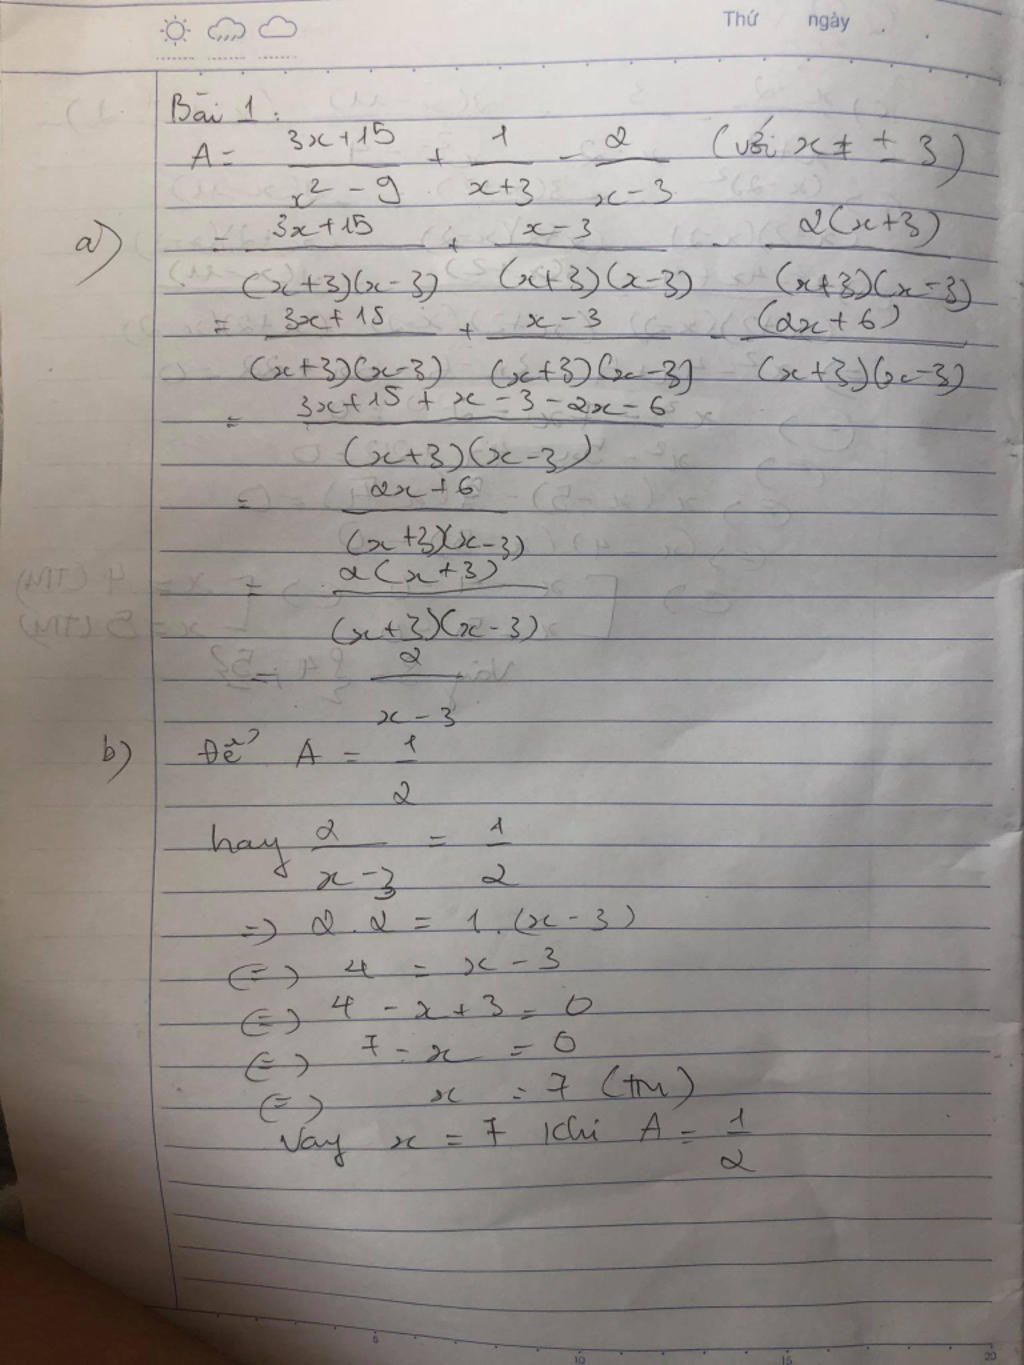 Thứ ngày
Bài 1:
A = (3x+15)/(x² - 9) + 1/(x+3) - 2/(x-3) (với x ≠ ± 3)
a) = (3x+15)/((x+3)(x-3)) + (x-3)/((x+3)(x-3)) - 2(x+3)/((x+3)(x-3))
= (3x+15)/((x+3)(x-3)) + (x-3)/((x+3)(x-3)) - (2x+6)/((x+3)(x-3))
= (3x+15+x-3-2x-6)/((x+3)(x-3))
= (2x+6)/((x+3)(x-3))
= 2(x+3)/((x+3)(x-3))
= 2/(x-3)
b) Để A = 1/2
hay 2/(x-3) = 1/2
=> 2.2 = 1.(x-3)
(=) 4 = x-3
(=) 4 - x+3 = 0
(=) 7-x = 0
(=) x = 7 (tm)
Vay x = 7 khi A = 1/2
5 10 15 20